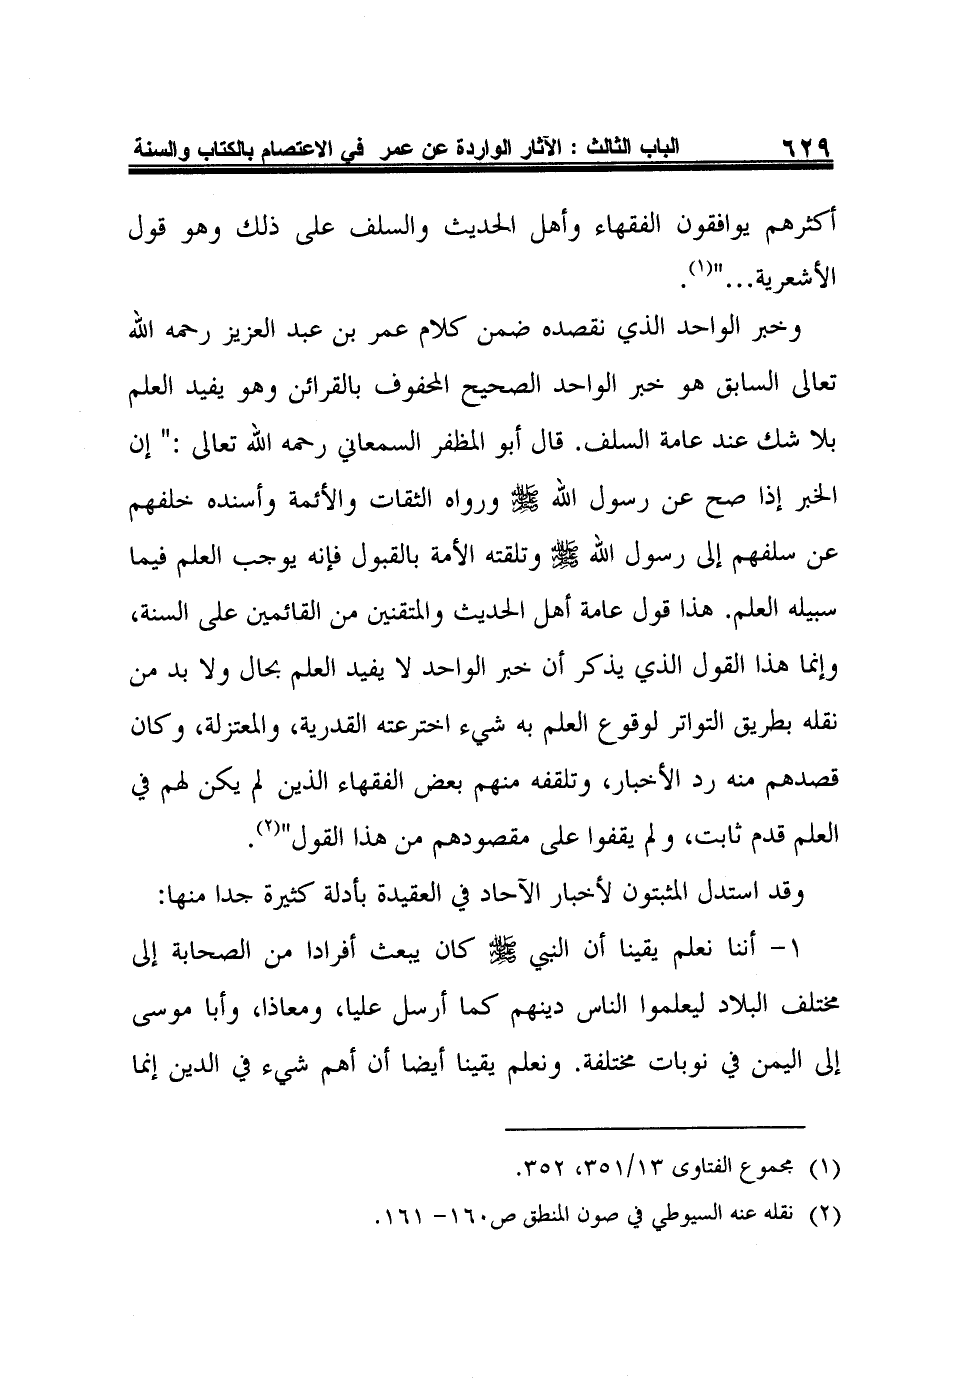 ٦٢٩ الباب الثالث : الآثار الواردة عن عمر في الاعتصام بالكتاب والسنة
أكثرهم يوافقون الفقهاء وأهل الحديث والسلف على ذلك وهو قول
الأشعرية..."(١).
وخبر الواحد الذي نقصده ضمن كلام عمر بن عبد العزيز رحمه الله
تعالى السابق هو خبر الواحد الصحيح المحفوف بالقرائن وهو يفيد العلم
بلا شك عند عامة السلف. قال أبو المظفر السمعاني رحمه الله تعالى :" إن
الخبر إذا صح عن رسول الله ﷺ ورواه الثقات والأئمة وأسنده خلفهم
عن سلفهم إلى رسول الله ﷺ وتلقته الأمة بالقبول فإنه يوجب العلم فيما
سبيله العلم. هذا قول عامة أهل الحديث والمتقنين من القائمين على السنة،
وإنما هذا القول الذي يذكر أن خبر الواحد لا يفيد العلم بحال ولا بد من
نقله بطريق التواتر لوقوع العلم به شيء اخترعته القدرية، والمعتزلة، وكان
قصدهم منه رد الأخبار، وتلقفه منهم بعض الفقهاء الذين لم يكن لهم في
العلم قدم ثابت، ولم يقفوا على مقصودهم من هذا القول"(٢).
وقد استدل المثبتون لأخبار الآحاد في العقيدة بأدلة كثيرة جدا منها:
١- أننا نعلم يقينا أن النبي ﷺ كان يبعث أفرادا من الصحابة إلى
مختلف البلاد ليعلموا الناس دينهم كما أرسل عليا، ومعاذا، وأبا موسى
إلى اليمن في نوبات مختلفة. ونعلم يقينا أيضا أن أهم شيء في الدين إنما
(١) مجموع الفتاوى ٣٥١/١٣، ٣٥٢.
(٢) نقله عنه السيوطي في صون المنطق ص١٦٠- ١٦١.